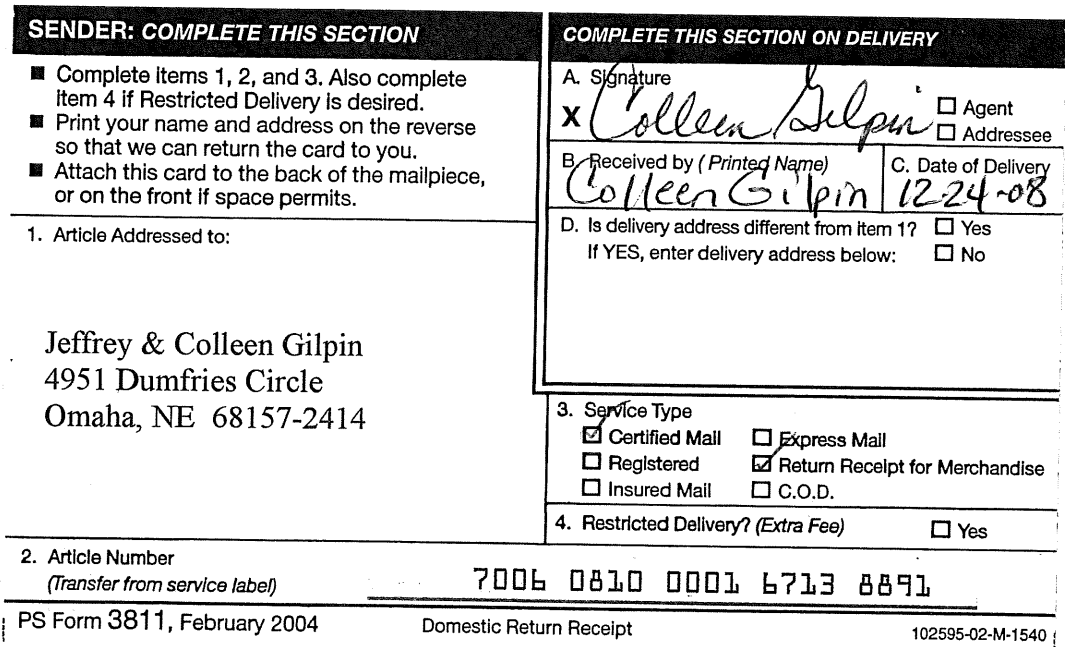 SENDER: COMPLETE THIS SECTION
■ Complete items 1, 2, and 3. Also complete
item 4 if Restricted Delivery is desired.
■ Print your name and address on the reverse
so that we can return the card to you.
■ Attach this card to the back of the mailpiece,
or on the front if space permits.
1. Article Addressed to:
Jeffrey & Colleen Gilpin
4951 Dumfries Circle
Omaha, NE 68157-2414
COMPLETE THIS SECTION ON DELIVERY
A. Signature
X Colleen Gilpin
☐ Agent
☐ Addressee
B. Received by (Printed Name)
Colleen Gilpin
C. Date of Delivery
12-24-08
D. Is delivery address different from item 1? ☐ Yes
If YES, enter delivery address below: ☐ No
3. Service Type
☑ Certified Mail ☐ Express Mail
☐ Registered ☑ Return Receipt for Merchandise
☐ Insured Mail ☐ C.O.D.
4. Restricted Delivery? (Extra Fee) ☐ Yes
2. Article Number
(Transfer from service label)
7006 0810 0001 6713 8891
PS Form 3811, February 2004 Domestic Return Receipt 102595-02-M-1540